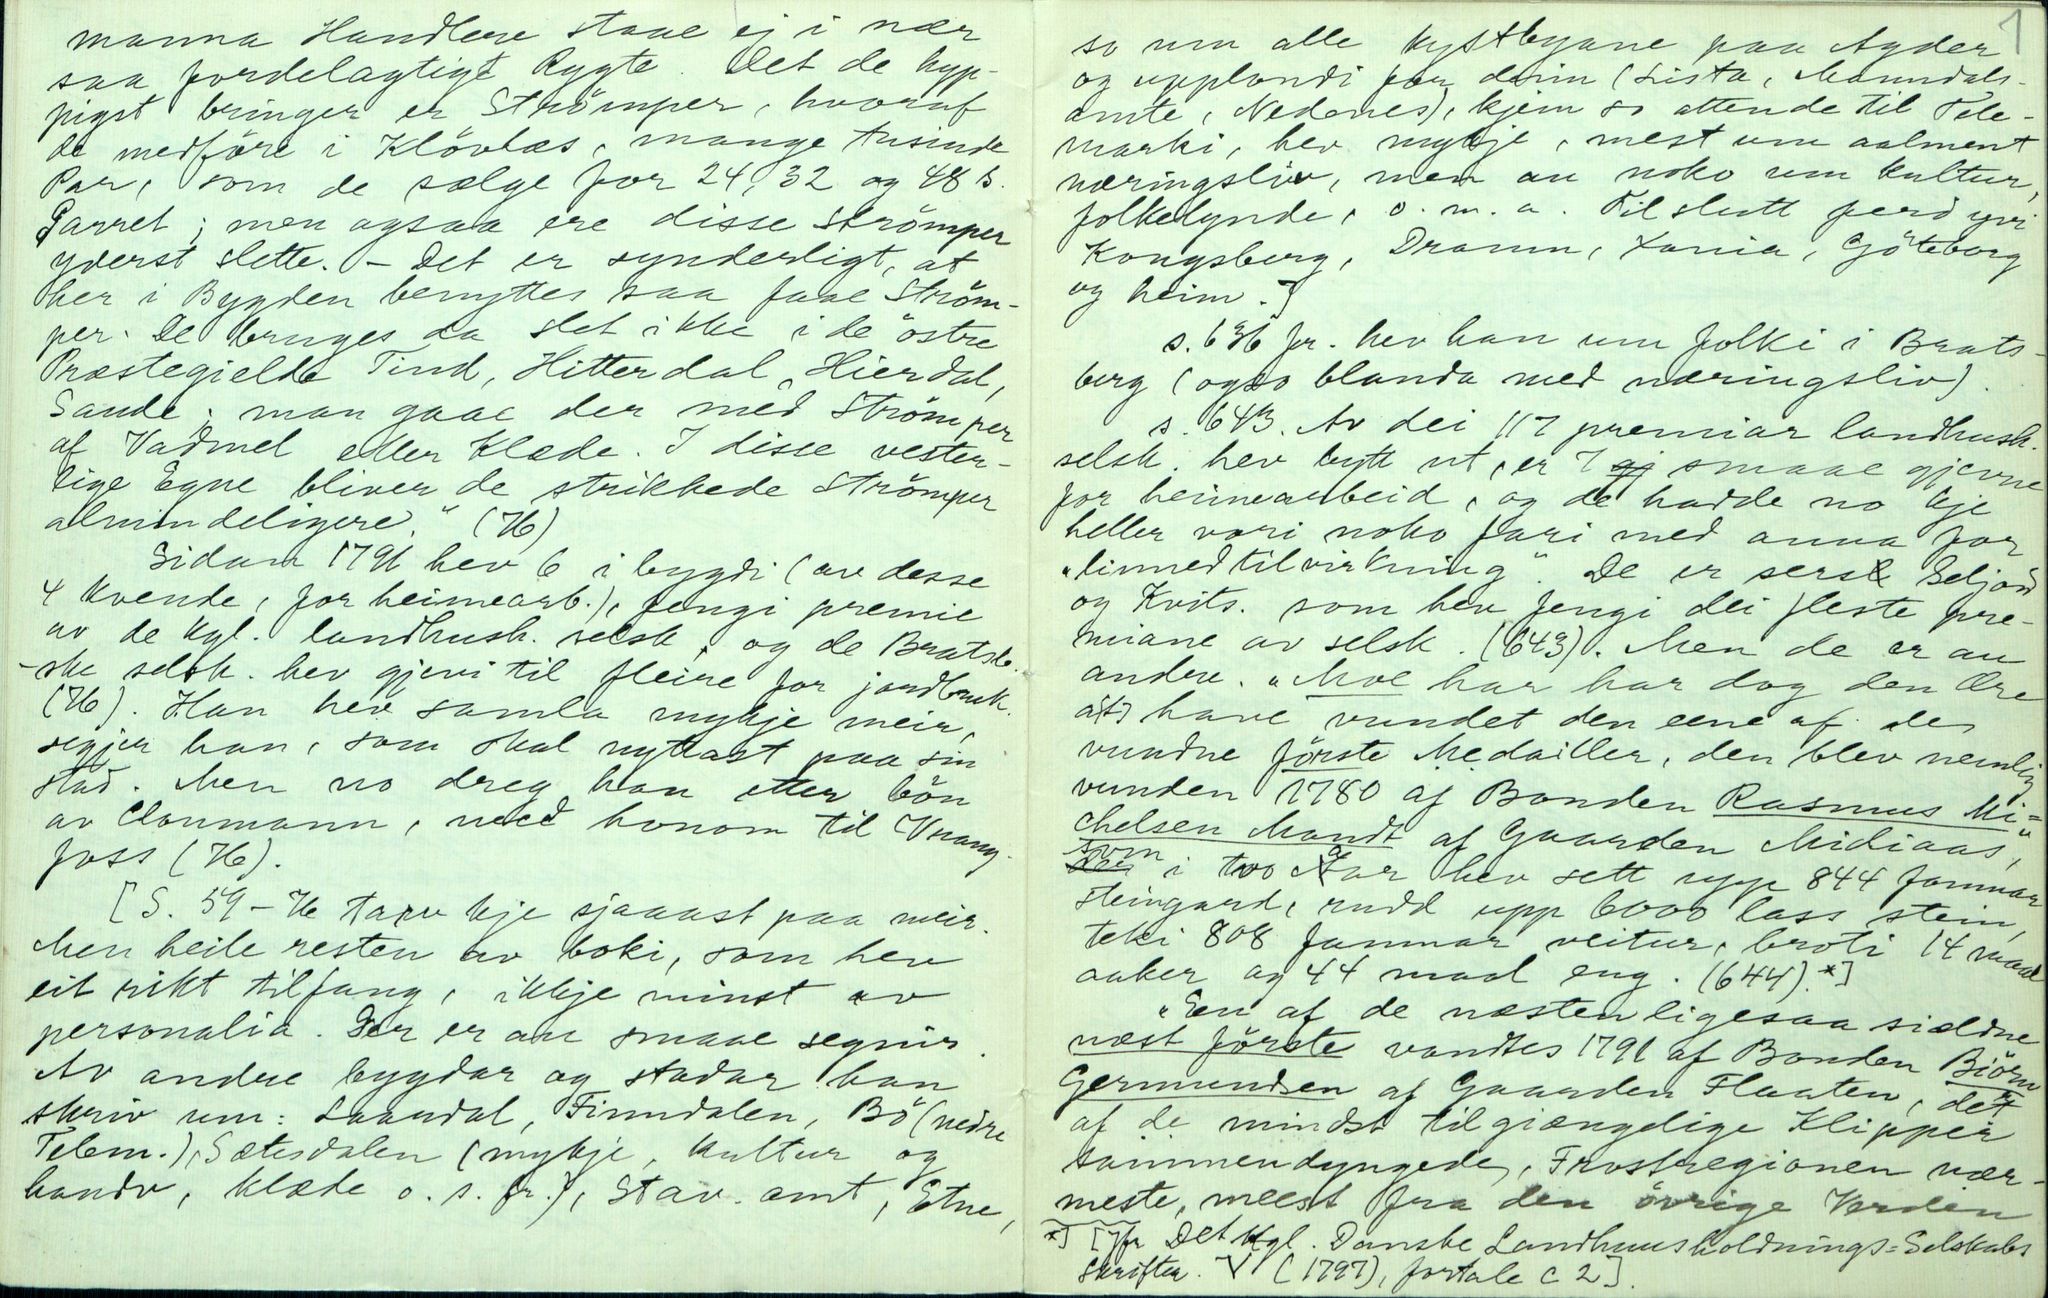 manna Handlere staae ej i nær
saa fordelagtigt Rygte. Det de hyp-
pigst bringer er Strömper, hvoraf
de medföre i Klövlæs, mange tusinde
Par, som de sælge for 24, 32 og 48 s.
Parret; men ogsaa ere disse Strömper
yderst slette. – Det er synderligt, at
her i Bygden benyttes saa faae Ström-
per. De bruges da slet ikke i de östre
Præstegielde Tind, Hitterdal, Hierdal,
Sande; man gaae der med Strömper
af Vadmel eller Klæde. I disse vester-
lige Egne bliver de strikkede Strömper
almindeligere." (76)
Sidan 1791 hev 6 i bygdi (av desse
4 kvende, for heimearb.), fengi premie
av de kgl. landhush. selsk., og de Bratsb.
-ske selsk. hev gjevi til fleire for jordbruk.
(76). Han hev samla mykje meir,
segjer han, som skal nyttast paa sin
stad. Men no dreg han etter bön
av Clonmann, med honom til Vrang-
foss (76).
[S. 59 – 76 tarv kje sjaaast paa meir.
Men heile resten av boki, som hev
eit rikt tilfang, ikkje minst av
personalia. Der er au smaae segnir.
Av andre bygdar og stadar han
skriv um: Laardal, Finndalen, Bö (nedre
Telem.), Sætesdalen (mykje, kultur og
handv, klæde o. s. fr.), Stav. amt, Etne,
1
so um alle kystbyane paa Agder
og upplandi for deim (Lista, Manndals-
amte, Nedenes), kjem so attende til Tele-
marki, hev mykje, mest um aalment
næringsliv, men au noko um kultur,
folkelynde, o. m. a. Til slutt ferd yvi
Kongsberg, Dramm, Xania, Göteborg
og heim.]
s. 636 fr. hev han um folki i Brats-
berg (ogso blanda med næringsliv).
s. 643. Av dei 117 premiar landhush.
selsk. hev bytt ut, er 7 gj smaae gjevne
for heimearbeid, og de hadde no kje
heller vori noko fari med anna for
"linnedtilvirkning". De er serst Seljord
og Kvits. som hev fengi dei fleste pre-
miane av selsk. (643). Men de er au
andre. "Moe har har dog den Ære
at have vundet den eene af de
vundne förste Medailler, den blev nemlig
vunden 1780 af Bonden Rasmus Mi=
chelsen Mandt af Gaarden Midiaas,"
som i two Aar hev sett upp 844 famnar
steingard, rudd upp 6000 lass stein,
teki 808 famnar veitur, broti 14 maal
aaker og 44 maal eng. (644).*]
"Een af de næsten ligesaa sieldne
næst förste vandtes 1791 af Bonden Biörn
Germundsen af Gaarden Flaaten, det
af de mindst tilgiængelige Klipper
sammendyngede, Frostregionen nær-
meste, meest fra den övrige Verden
*] [Jfr Det kgl. Danske Landhuusholdnings=Selskabs
Skrifter. V (1797), fortale c 2].